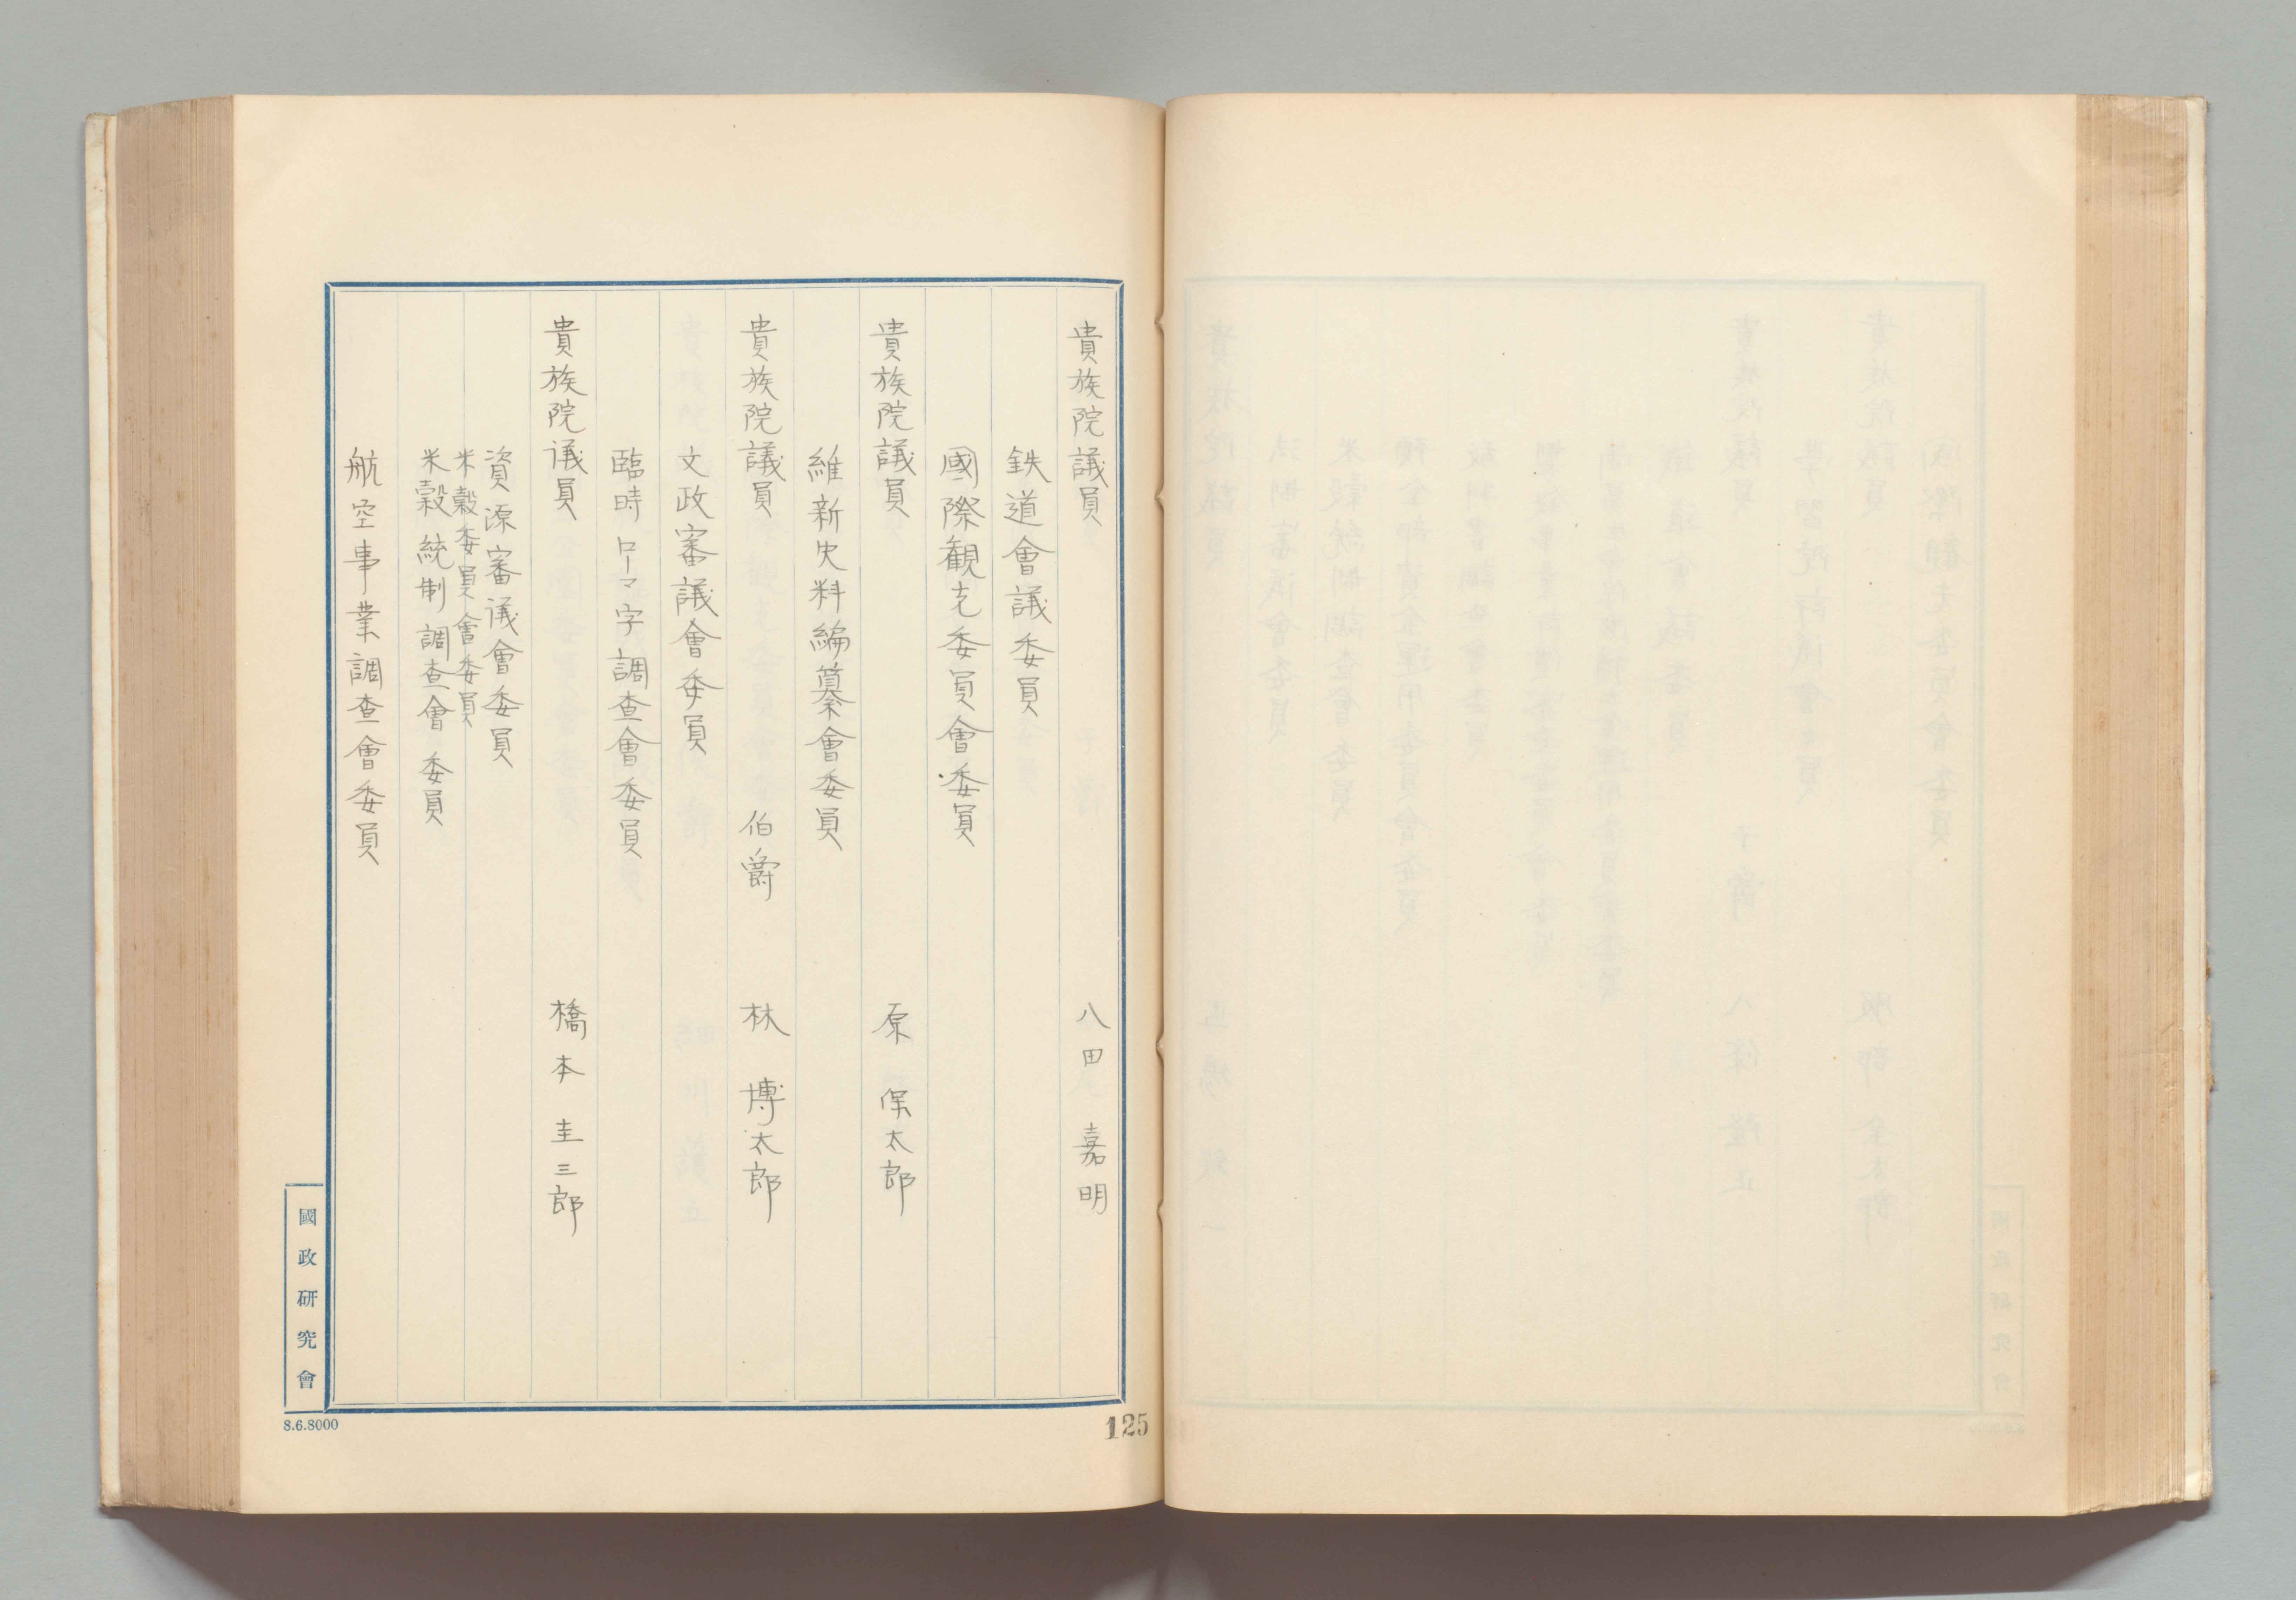 貴族院議員 八田嘉明
鉄道會議委員
國際観光委員會委員
貴族院議員 原保太郎
維新史料編纂會委員
貴族院議員 伯爵 林博太郎
文政審議會委員
臨時ローマ字調査會委員
貴族院议員 橋本圭三郎
資源審议會委員
米穀委員會委員
米穀統制調査會委員
航空事業調査會委員
國政研究會
8.6.8000
125